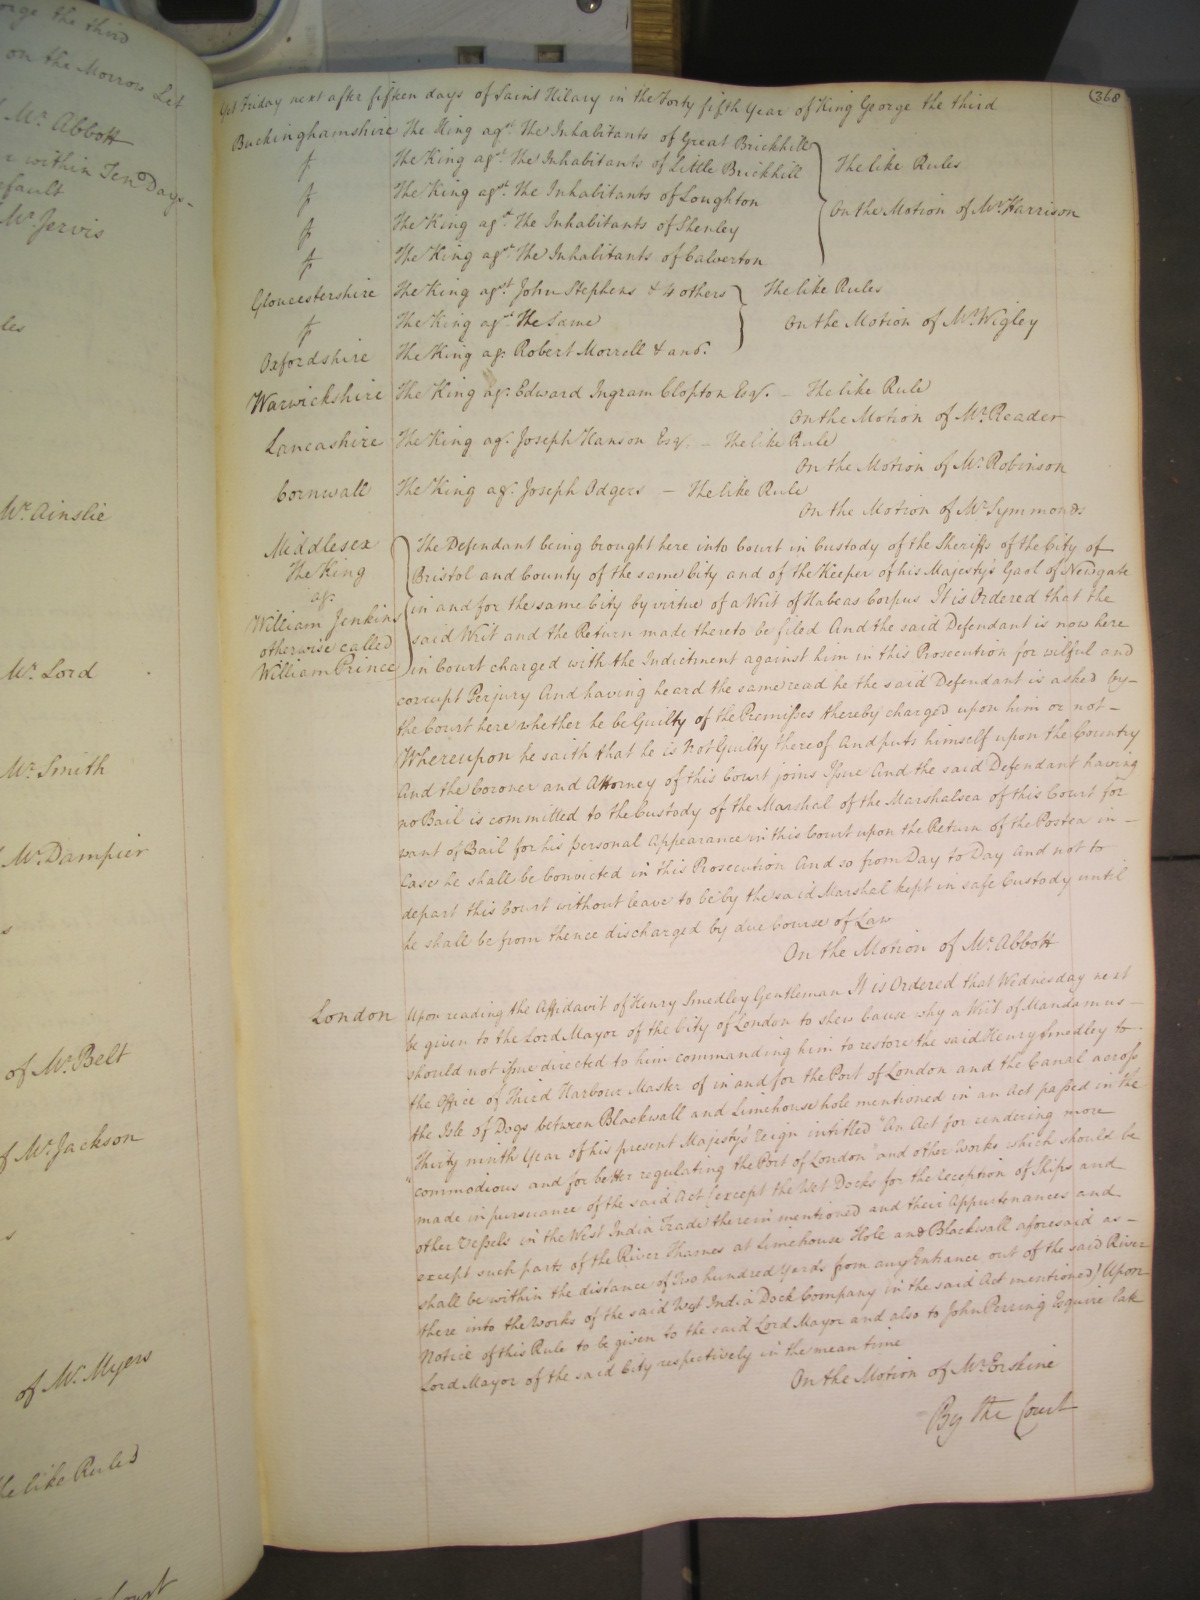 orge the third
on the Morrow Let
Mr. Abbott
within Ten Days-
efault
Mr. Jervis
les
Mr. Ainslie
Mr. Lord
Mr. Smith
Mr. Dampier
s
of Mr. Belt
of Mr. Jackson
s
of Mr. Myers
he like Rules
Court
368
Yet Friday next after fifteen days of Saint Hilary in the Forty fifth Year of King George the third
Buckinghamshire The King agst. The Inhabitants of Great Brickhill
The King agst. The Inhabitants of Little Brickhill The like Rules
The King agst. The Inhabitants of Loughton
On the Motion of Mr. Harrison
The King agst. The Inhabitants of Shenley
The King agst. The Inhabitants of Calverton
Gloucestershire The King agst. John Stephens & 4 others The like Rules
The King agst. The Same On the Motion of Mr. Wigley
Oxfordshire The King agt. Robert Morrell & anor.
Warwickshire The King agt. Edward Ingram Clopton Esqr. - The like Rule
On the Motion of Mr. Reader
Lancashire The King agt. Joseph Hanson Esqr. - The like Rule
On the Motion of Mr. Robinson
Cornwall The King agt. Joseph Odgers - The like Rule
On the Motion of Mr. Symmonds
Middlesex
The King
agt.
William Jenkins
otherwise called
William Prince
The Defendant being brought here into Court in Custody of the Sheriffs of the City of
Bristol and County of the same City and of the Keeper of his Majesty's Gaol of Newgate
in and for the same City by virtue of a Writ of Habeas Corpus It is Ordered that the
said Writ and the Return made thereto be filed And the said Defendant is now here
in Court charged with the Indictment against him in this Prosecution for wilful and
corrupt Perjury And having heard the same read he the said Defendant is asked by-
the Court here whether he be Guilty of the Premisses thereby charged upon him or not-
Whereupon he saith that he is Not Guilty thereof And puts himself upon the Country
And the Coroner and Attorney of this Court joins Issue And the said Defendant having
no Bail is committed to the Custody of the Marshal of the Marshalsea of this Court for
want of Bail for his personal Appearance in this Court upon the Return of the Postea in-
Case he shall be Convicted in this Prosecution And so from Day to Day And not to
depart this Court without leave to be by the said Marshal kept in safe Custody until
he shall be from thence discharged by due Course of Law
On the Motion of Mr. Abbott
London Upon reading the Affidavit of Henry Smedley Gentleman It is Ordered that Wednesday next
be given to the Lord Mayor of the City of London to shew Cause why a Writ of Mandamus-
should not issue directed to him commanding him to restore the said Henry Smedley to
the Office of Third Harbour Master of in and for the Port of London and the Canal across
the Isle of Dogs between Blackwall and Limehouse hole mentioned in an Act passed in the
Thirty ninth Year of his present Majesty's reign intitled "An Act for rendering more
"commodious and for better regulating the Port of London" and other Works which should be
made in pursuance of the said Act (except the Wet Docks for the reception of Ships and
other Vessels in the West India Trade therein mentioned and their Appurtenances and
except such parts of the River Thames at Limehouse Hole and Blackwall aforesaid as-
shall be within the distance of Two hundred Yards from any Entrance out of the said River
there into the Works of the said West India Dock Company in the said Act mentioned) Upon
Notice of this Rule to be given to the said Lord Mayor and also to John Perring Esquire late
Lord Mayor of the said City respectively in the mean time
On the Motion of Mr. Erskine
By the Court